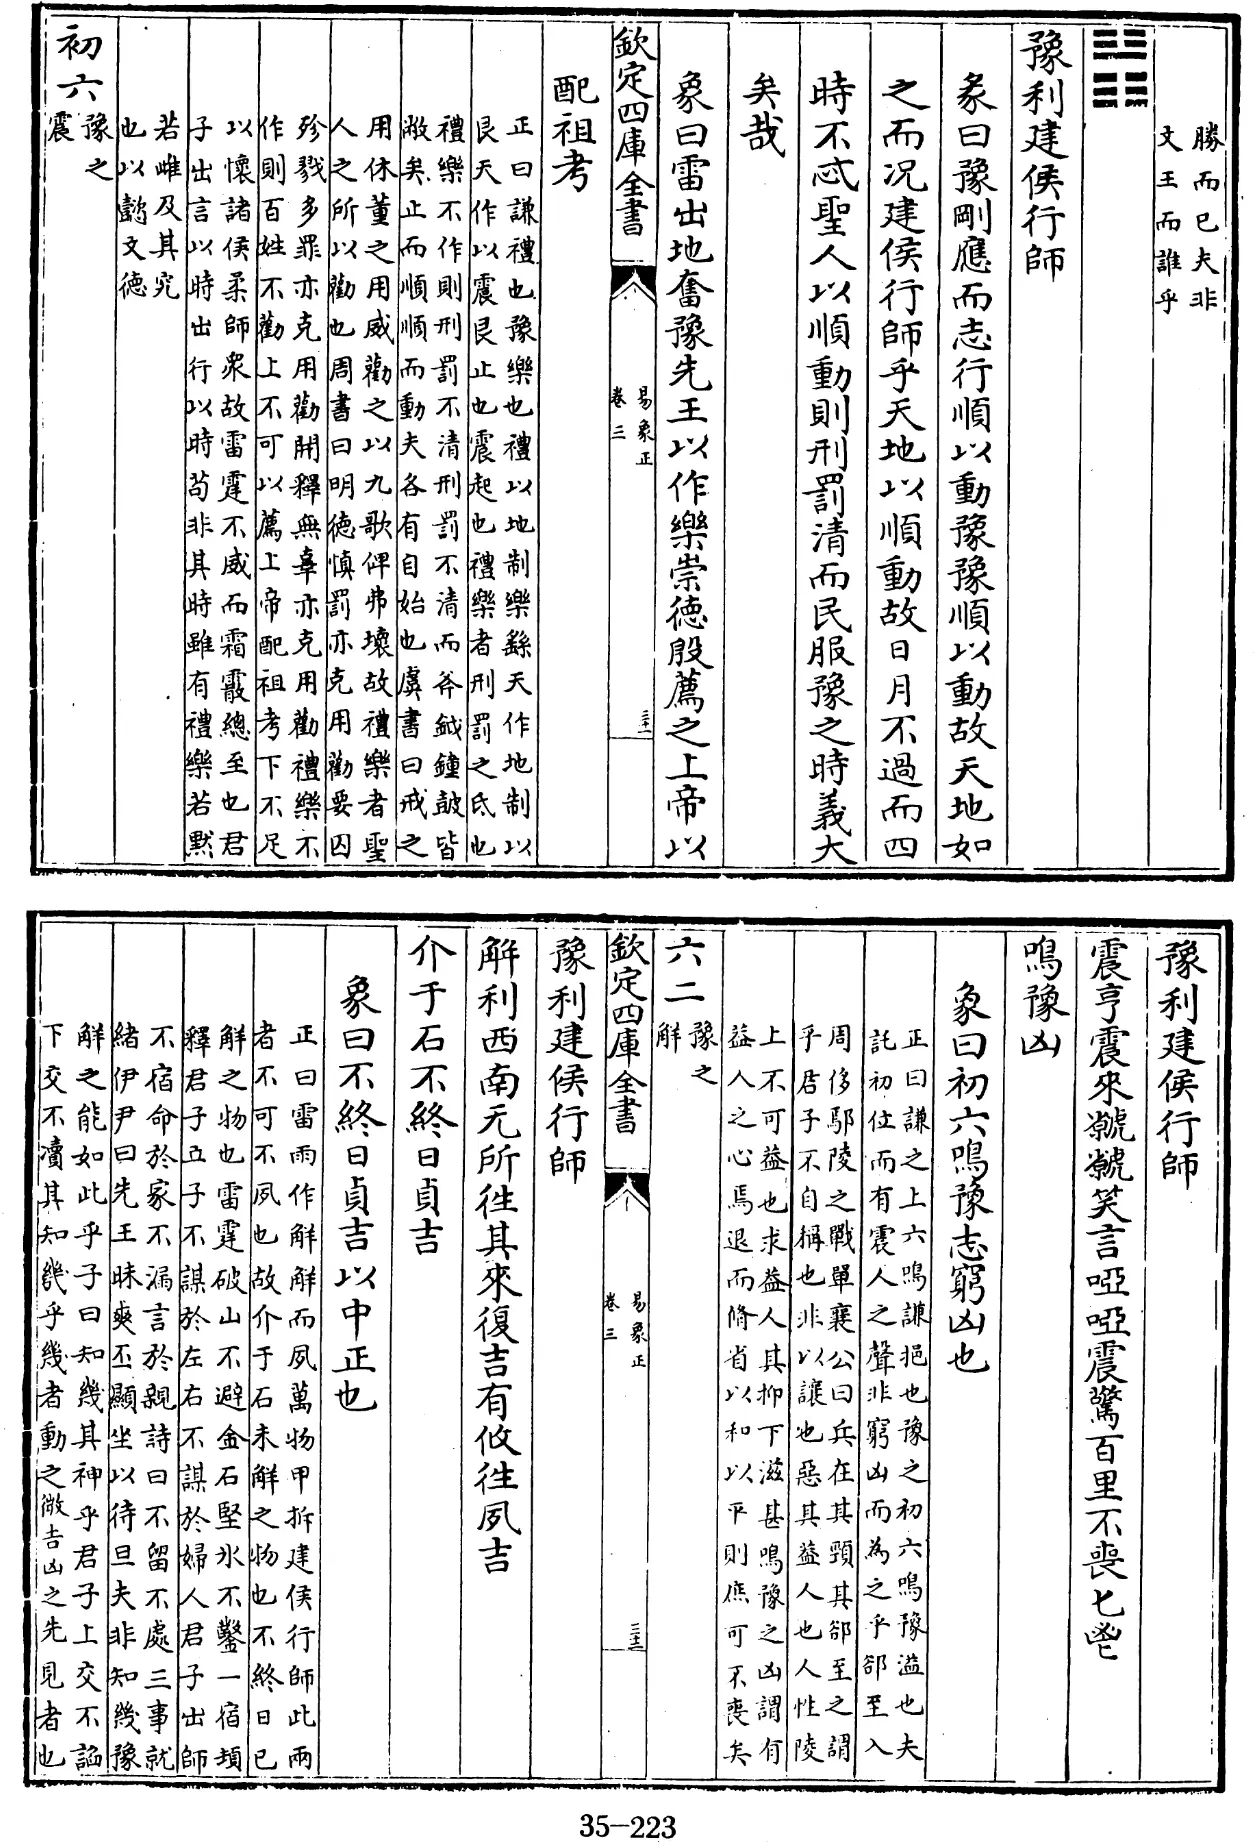 勝而已夫非
文王而誰乎
䷏
豫利建侯行師
彖曰豫剛應而志行順以動豫豫順以動故天地如
之而况建侯行師乎天地以順動故日月不過而四
時不忒聖人以順動則刑罰清而民服豫之時義大
矣哉
象曰雷出地奮豫先王以作樂崇德殷薦之上帝以
欽定四庫全書
易象正
卷三
三十一
配祖考
正曰謙禮也豫樂也禮以地制樂繇天作地制以
艮天作以震艮止也震起也禮樂者刑罰之氐也
禮樂不作則刑罰不清刑罰不清而斧鉞鐘鼓皆
敝矣止而順順而動夫各有自始也虞書曰戒之
用休董之用威勸之以九歌俾弗壞故禮樂者聖
人之所以勸也周書曰明德慎罰亦克用勸要囚
殄戮多罪亦克用勸開釋無辜亦克用勸禮樂不
作則百姓不勸上不可以薦上帝配祖考下不足
以懷諸侯柔師衆故雷霆不威而霜霰總至也君
子出言以時出行以時苟非其時雖有禮樂若黙
若雌及其究
也以懿文德
初六
豫之
震
豫利建侯行師
震亨震來虩虩笑言啞啞震驚百里不喪匕鬯
鳴豫凶
象曰初六鳴豫志窮凶也
正曰謙之上六鳴謙挹也豫之初六鳴豫溢也夫
託初位而有震人之聲非窮凶而為之乎郤至入
周侈鄢陵之戰單襄公曰兵在其頸其郤至之謂
乎君子不自稱也非以讓也惡其蓋人也人性陵
上不可蓋也求蓋人其抑下滋甚鳴豫之凶謂有
蓋人之心焉退而脩省以和以平則庶可不喪矣
六二
豫之
解
欽定四庫全書
易象正
卷三
三十二
豫利建侯行師
解利西南无所往其來復吉有攸往夙吉
介于石不終日貞吉
象曰不終日貞吉以中正也
正曰雷雨作解解而夙萬物甲拆建侯行師此兩
者不可不夙也故介于石未解之物也不終日已
解之物也雷霆破山不避金石堅氷不鑿一宿頽
釋君子立子不謀於左右不謀於婦人君子出師
不宿命於家不漏言於親詩曰不留不處三事就
緒伊尹曰先王昧爽丕顯坐以待旦夫非知幾豫
解之能如此乎子曰知幾其神乎君子上交不諂
下交不瀆其知幾乎幾者動之微吉凶之先見者也
35-223